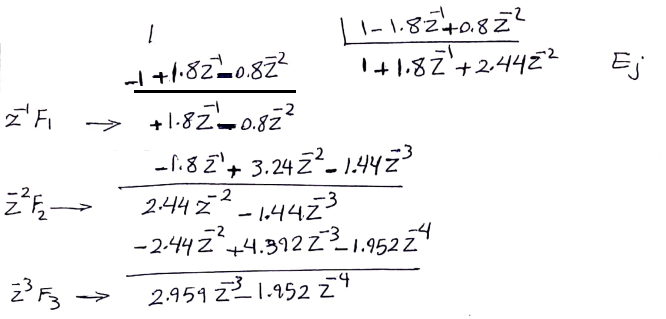 1 | 1-1.8z⁻¹+0.8z⁻²
-1+1.8z⁻¹-0.8z⁻² 1+1.8z⁻¹+2.44z⁻² Ej
z⁻¹F₁ → +1.8z⁻¹-0.8z⁻²
-1.8z⁻¹+3.24z⁻²-1.44z⁻³
z⁻²F₂ → 2.44z⁻²-1.44z⁻³
-2.44z⁻²+4.392z⁻³-1.952z⁻⁴
z⁻³F₃ → 2.959z⁻³-1.952z⁻⁴